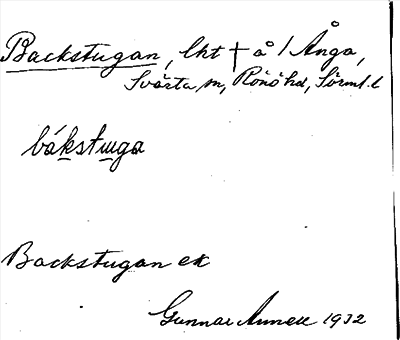 Backstugan, lht † å / Ånga,
Svärta sn, Rönö hd, Sörml. l
bákstuga
Backstugan ek
Gunnar 1932